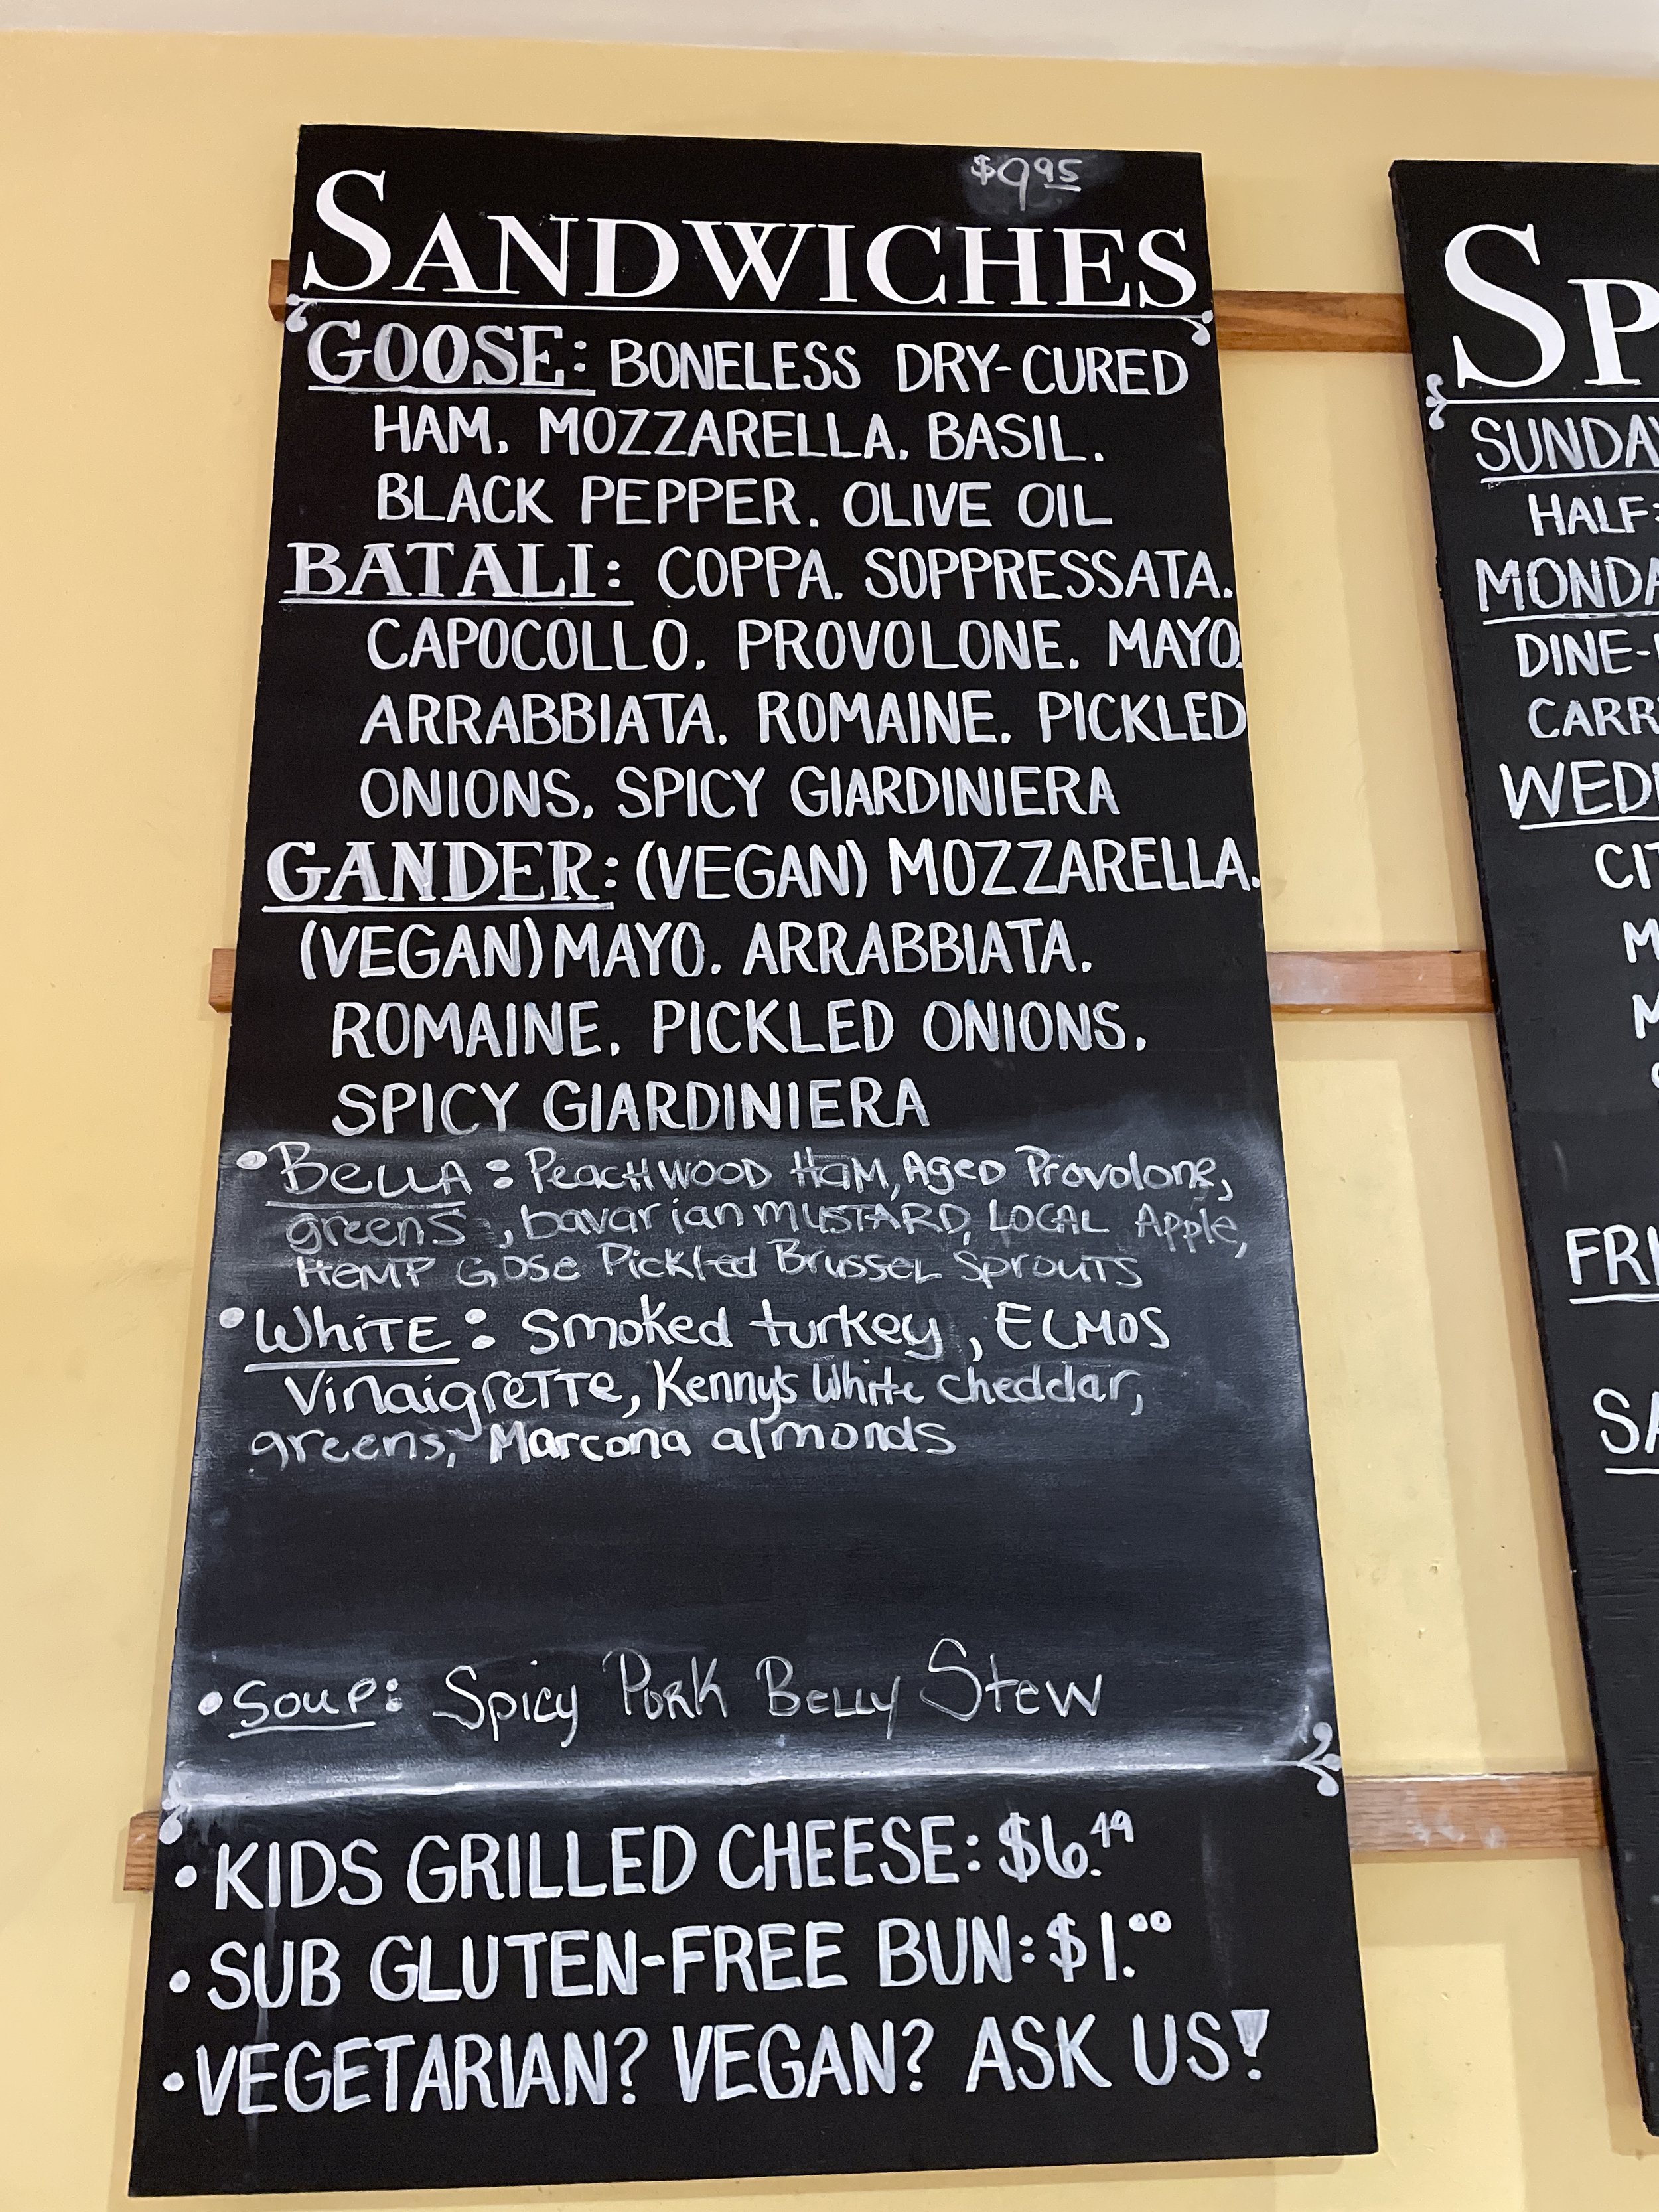 $9.95
SANDWICHES
GOOSE: BONELESS DRY-CURED
HAM. MOZZARELLA. BASIL.
BLACK PEPPER. OLIVE OIL
BATALI: COPPA. SOPPRESSATA.
CAPOCOLLO. PROVOLONE. MAYO.
ARRABBIATA. ROMAINE. PICKLED
ONIONS. SPICY GIARDINIERA
GANDER: (VEGAN) MOZZARELLA.
(VEGAN) MAYO. ARRABBIATA.
ROMAINE. PICKLED ONIONS.
SPICY GIARDINIERA
• BeLLA: PeacHWOOD HaM, Aged Provolone,
greens, bavarian MUSTARD, LOCAL Apple,
HeMP GOSe Pickled BrusseL SproutS
• WhiTE: Smoked turkey, ELMOS
VinaigreTTe, Kenny's White cheddar,
greens, Marcona almonds
• Soup: Spicy PORK BeLLy Stew
• KIDS GRILLED CHEESE: $6.49
• SUB GLUTEN-FREE BUN: $1.00
• VEGETARIAN? VEGAN? ASK US!
SP
SUNDAY
HALF:
MONDA
DINE-
CARR
WEDN
CIT
M
M
FRI
SA